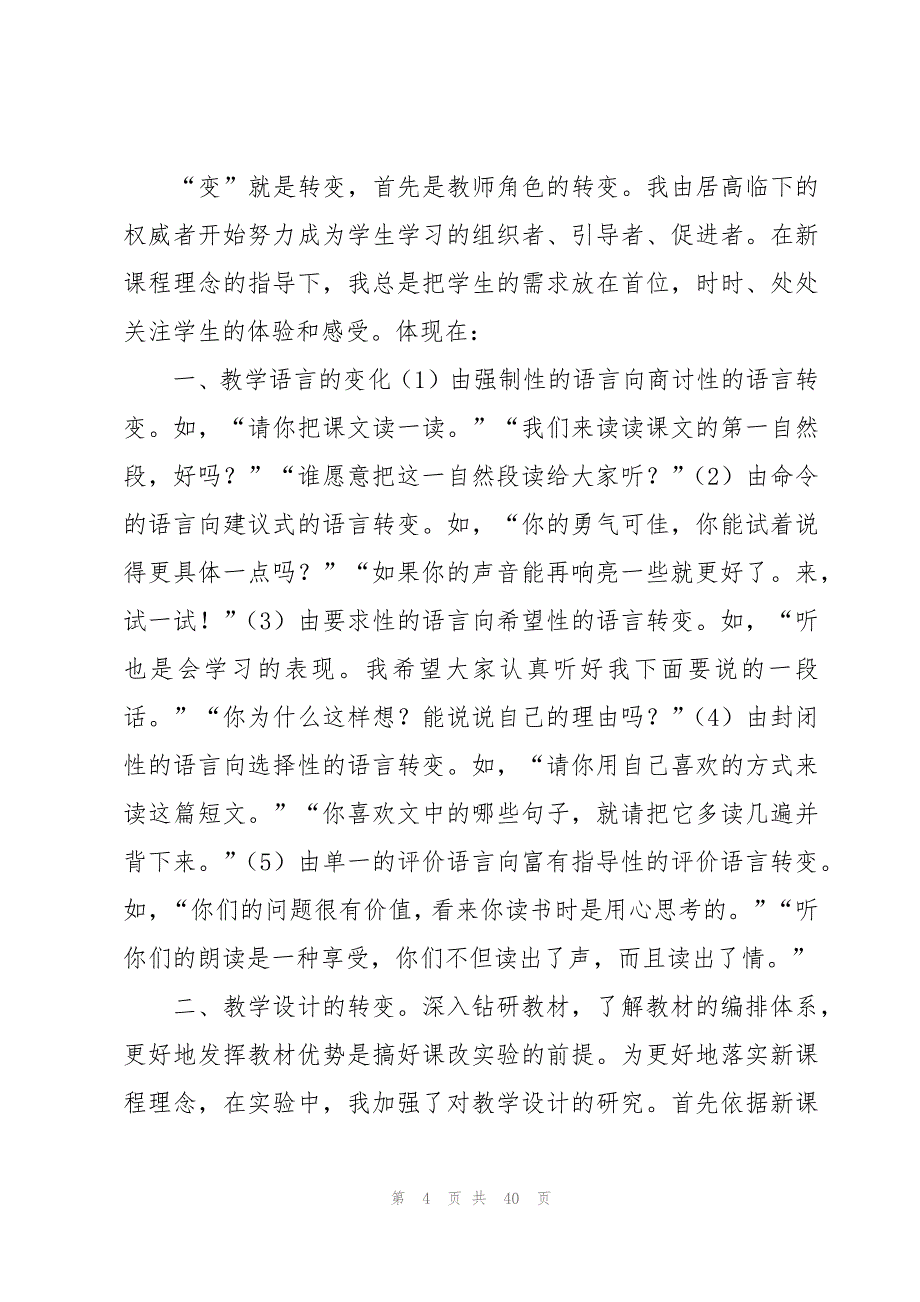 “变”就是转变，首先是教师角色的转变。我由居高临下的
权威者开始努力成为学生学习的组织者、引导者、促进者。在新
课程理念的指导下，我总是把学生的需求放在首位，时时、处处
关注学生的体验和感受。体现在：
一、教学语言的变化（1）由强制性的语言向商讨性的语言转
变。如，“请你把课文读一读。”“我们来读读课文的第一自然
段，好吗？”“谁愿意把这一自然段读给大家听？”（2）由命令
的语言向建议式的语言转变。如，“你的勇气可佳，你能试着说
得更具体一点吗？”“如果你的声音能再响亮一些就更好了。来，
试一试！”（3）由要求性的语言向希望性的语言转变。如，“听
也是会学习的表现。我希望大家认真听好我下面要说的一段
话。”“你为什么这样想？能说说自己的理由吗？”（4）由封闭
性的语言向选择性的语言转变。如，“请你用自己喜欢的方式来
读这篇短文。”“你喜欢文中的哪些句子，就请把它多读几遍并
背下来。”（5）由单一的评价语言向富有指导性的评价语言转变。
如，“你们的问题很有价值，看来你读书时是用心思考的。”“听
你们的朗读是一种享受，你们不但读出了声，而且读出了情。”
二、教学设计的转变。深入钻研教材，了解教材的编排体系，
更好地发挥教材优势是搞好课改实验的前提。为更好地落实新课
程理念，在实验中，我加强了对教学设计的研究。首先依据新课
第 4 页 共 40 页